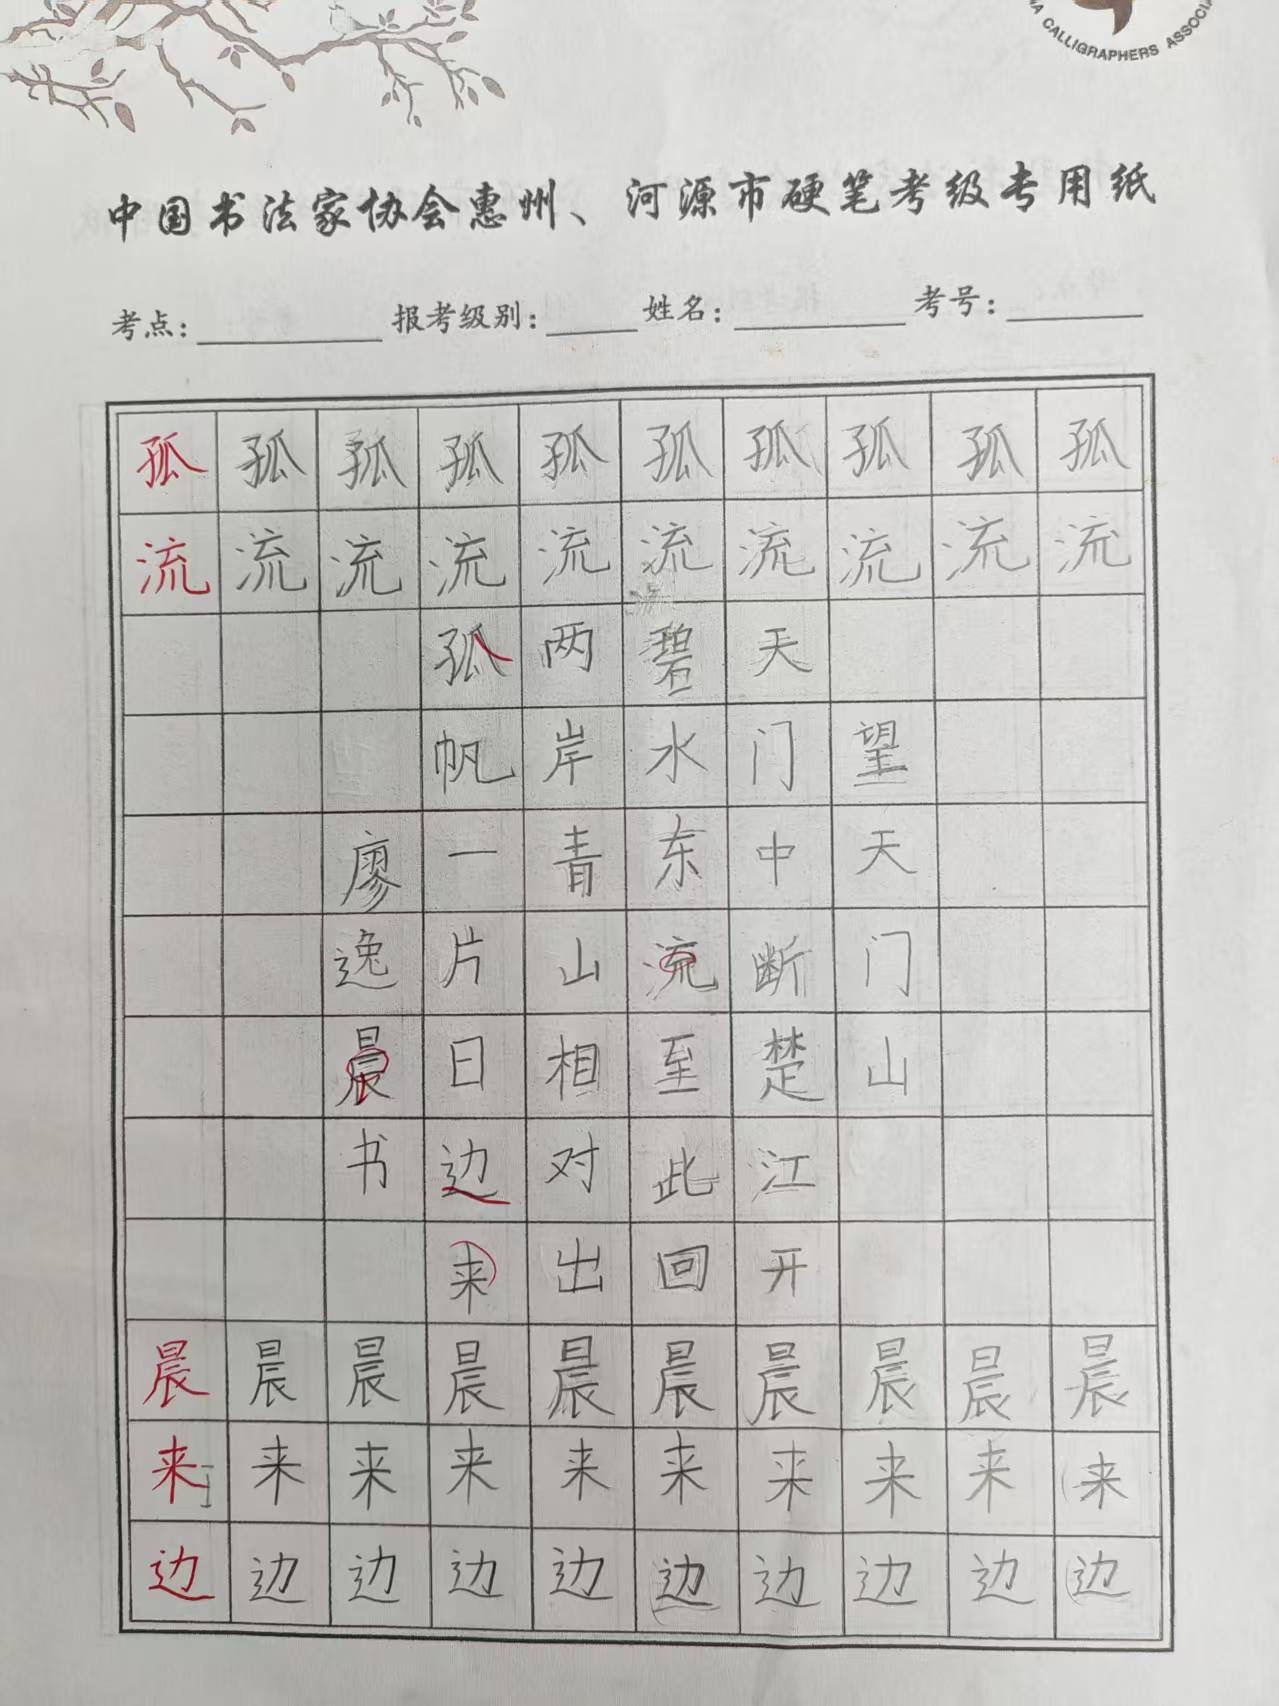 NA CALLIGRAPHERS ASSOCI
中国书法家协会惠州、河源市硬笔考级专用纸
考点: 报考级别: 姓名: 考号:
孤孤孤孤孤孤孤孤孤孤
流流流流流流流流流流
望天门山
天门中断楚江开
碧水东流至此回
两岸青山相对出
孤帆一片日边来
廖逸晨书
晨晨晨晨晨晨晨晨晨晨
来来来来来来来来来来
边边边边边边边边边边